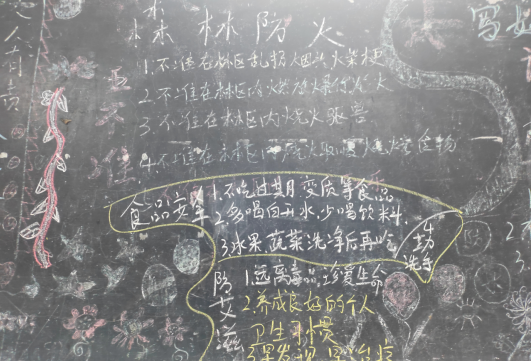 森林防火
1.不准在林区乱扔烟头火柴梗
2.不准在林区内燃放爆竹烟火
3.不准在林区内烧火驱兽
4.不准在林区内烧火取暖烧烤食物
人人有责
写好
食品安全
1.不吃过期变质等食品
2.多喝白开水,少喝饮料.
3.水果蔬菜洗净后再吃
勤洗手
防艾滋
1.远离毒品,珍爱生命
2.养成良好的个人
卫生习惯
3.早发现